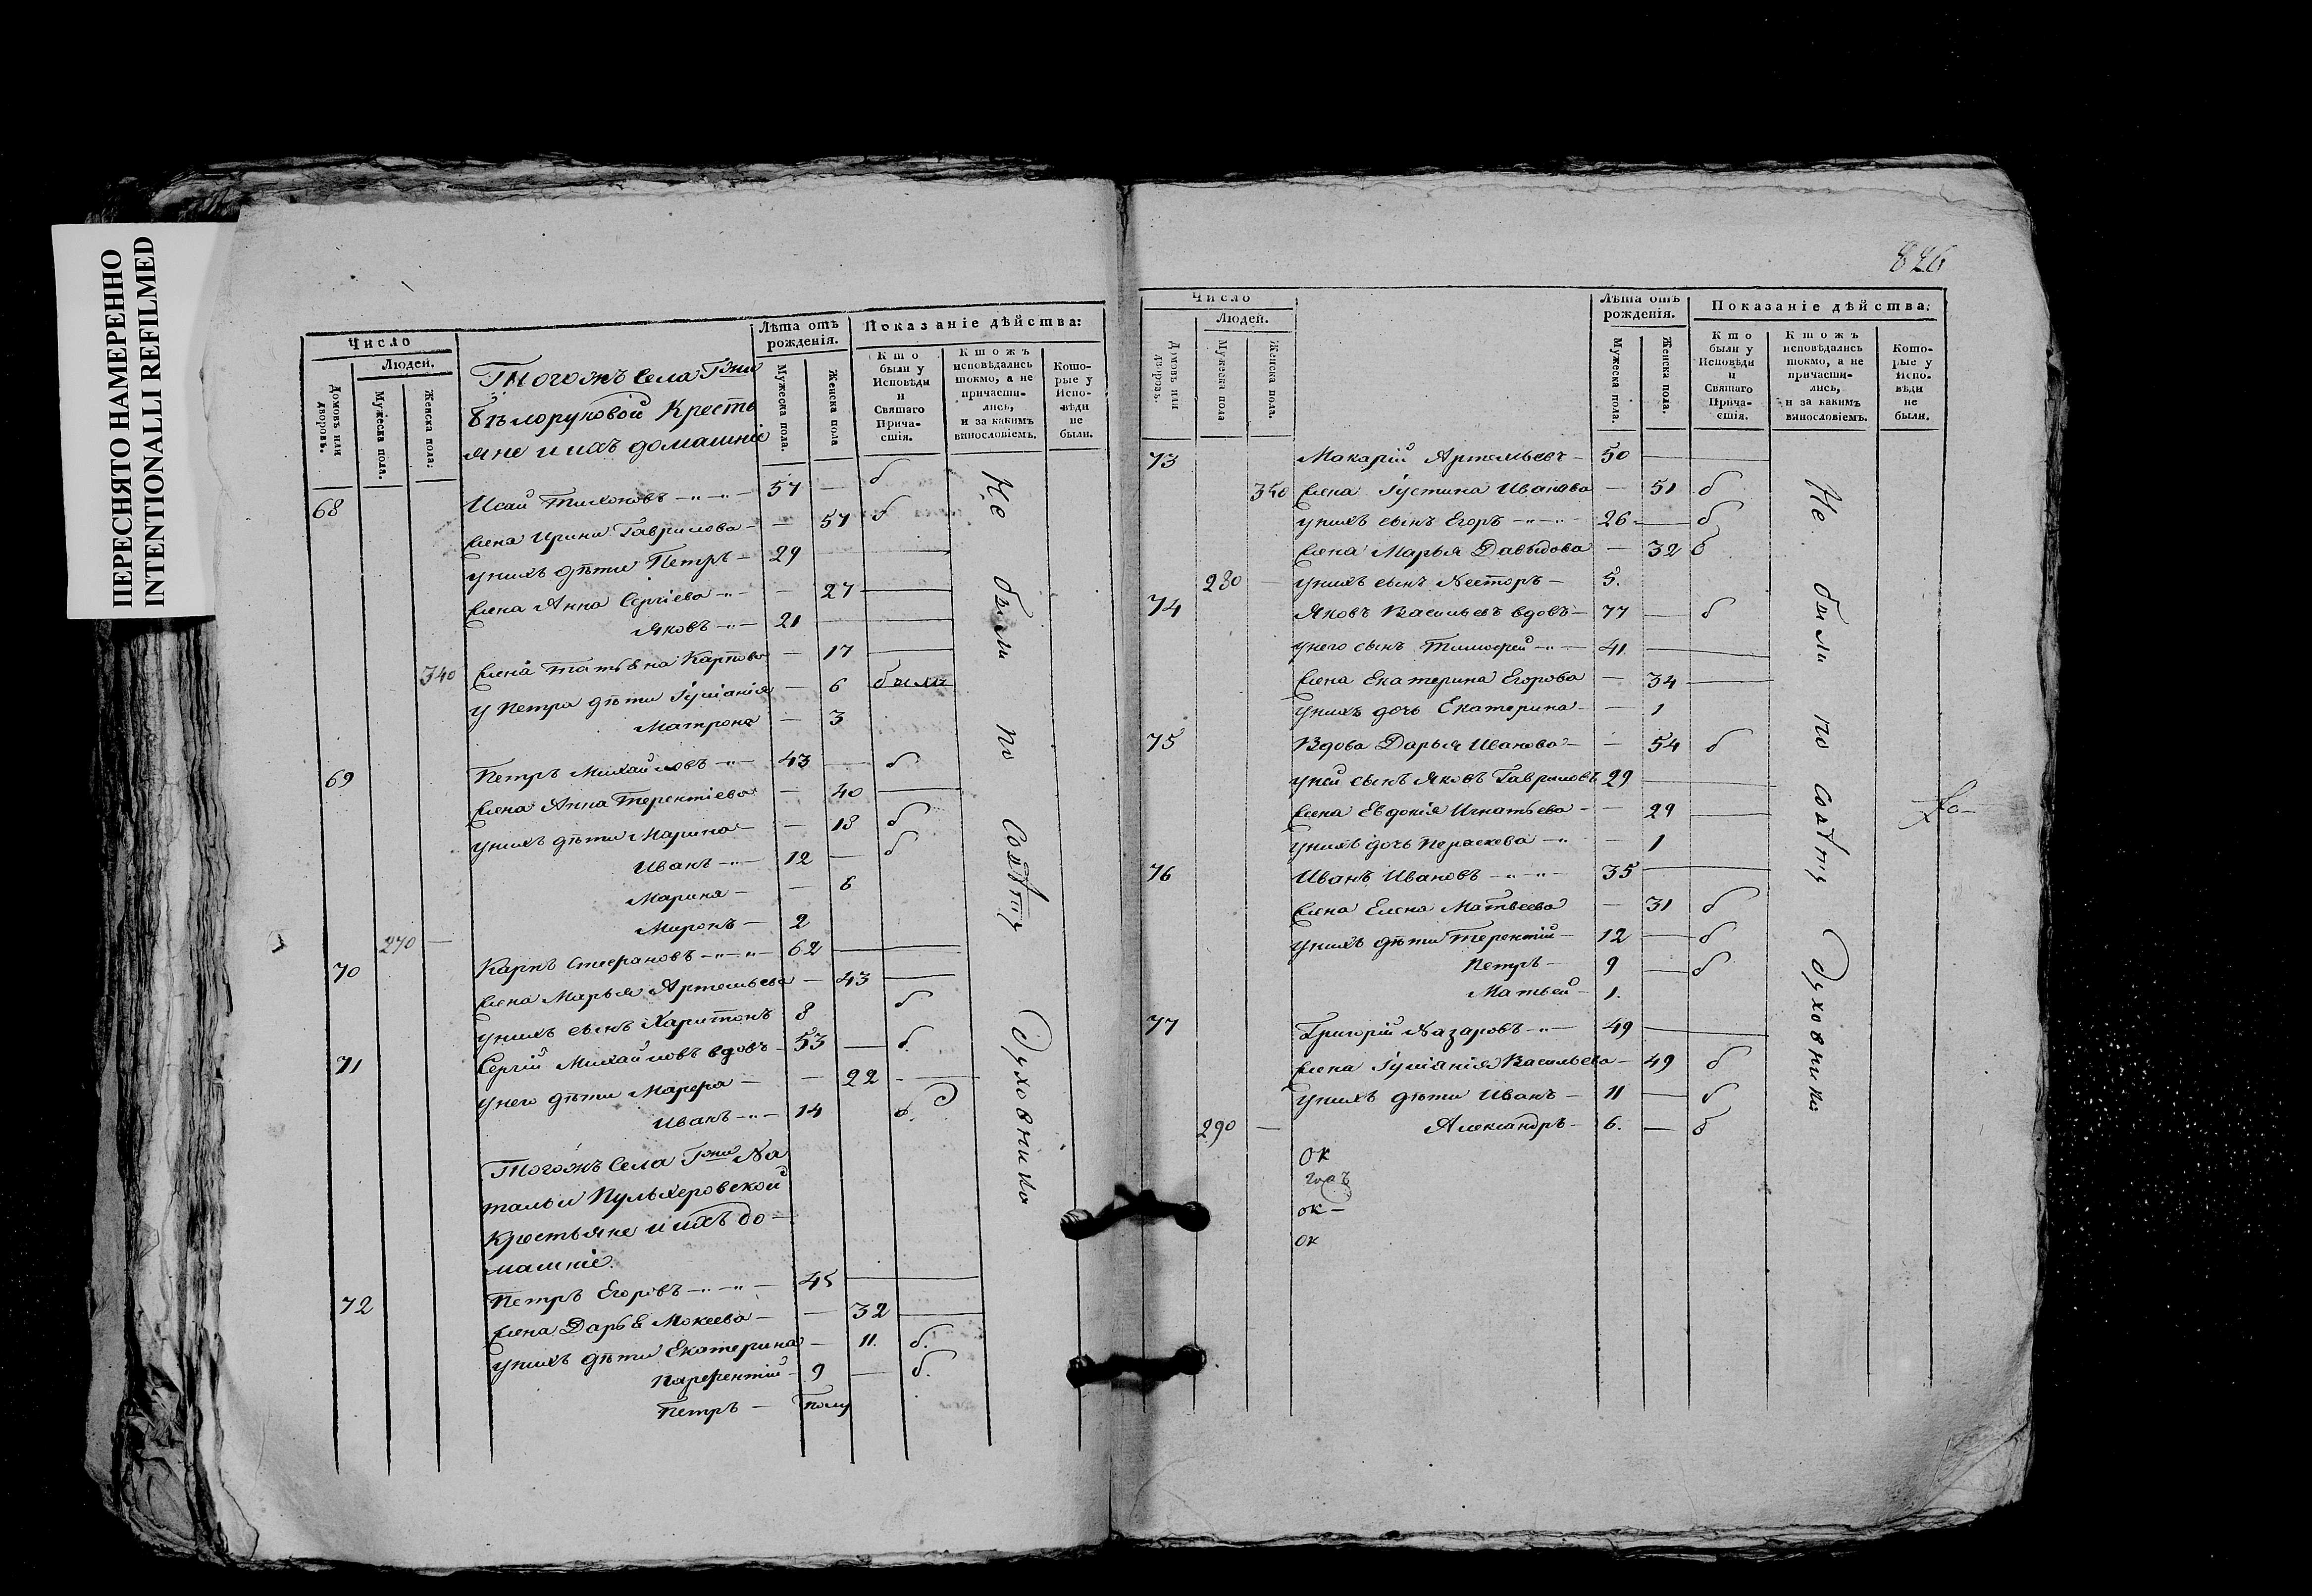 ПЕРЕСНЯТО НАМЕРЕННО
INTENTIONALLI REFILMED
Число
Людей.
Домовъ или дворовъ.
Мужеска пола.
Женска пола.
Лѣта отъ рожденія.
Мужеска пола.
Женска пола
Показаніе дѣйства:
Кто были у Исповѣди и Святаго Причастія.
Ктожъ исповѣдались токмо, а не причастились, и за какимъ винословіемъ.
Которые у Исповѣди не были.
Тогожъ Села Гжи
Бѣлоруковой Кресть
яне и ихъ домашніе
68 Исай Тихоновъ 57 — б
Жена Ирина Гаврилова — 57 б
у нихъ дѣти Петръ — 29
Жена Анна Сергіева — 27
Яковъ — 21
340 Жена Татьяна Карпова — 17
у Петра дѣти Іуліанія — 6 были
Матрона — 3
69 Петръ Михайловъ — 43 — б
Жена Анна Терентіева — 40
у нихъ дѣти Марина — 18 б
Иванъ — 12 — б
Марина — 6
270 — Миронъ — 2
70 Карпъ Стефановъ — 62
Жена Марья Артемьева — 43
у нихъ сынъ Харитонъ 8 б
71 Сергій Михайловъ вдовъ — 53 — б.
у него дѣти Марфа — 22
Иванъ — 14 б.
Тогожъ Села Гжи На
тальи Пульхеровской
Крестьяне и ихъ до-
машніе.
72 Петръ Егоровъ — 45
Жена Дарья Мокеева — 32
у нихъ дѣти Екатерина — 11. б.
Парфентій — 9 — б.
Петръ — полу
Не были по Совѣту Духовника
826
Число
Людей.
Домовъ или дворовъ.
Мужеска пола
Женска пола.
Лѣта отъ рожденія.
Мужеска пола.
Женска пола.
Показаніе дѣйства:
Кто были у Исповѣди и Святаго Причастія.
Ктожъ исповѣдались токмо, а не причастились, и за какимъ винословіемъ.
Которые у Исповѣди не были.
73 Макарій Артемьевъ — 50
350 Жена Іустина Иванова — 51 б
у нихъ сынъ Егоръ — 26 — б
Жена Марья Давыдова — 32 б
280 — у нихъ сынъ Несторъ — 5.
74 Яковъ Васильевъ вдовъ — 77 — б
у него сынъ Тимофей — 41
Жена Екатерина Егорова — 34
у нихъ дочь Екатерина — 1
75 Вдова Дарья Иванова — 54 б
у ней сынъ Яковъ Гавриловъ 29
Жена Евдокія Игнатьева — 29
у нихъ дочь Пераскева — 1
76 Иванъ Ивановъ — 35
Жена Елена Матвеева — 31 б
у нихъ дѣти Терентій — 12 — б
Петръ — 9 — б
Матвей — 1.
77 Григорій Назаровъ — 49
Жена Іуліанія Васильева — 49 б
у нихъ дѣти Иванъ — 11 — б
290 — Александръ — 6. — б
ок
ок —
ок
Не были по совѣту Духовника